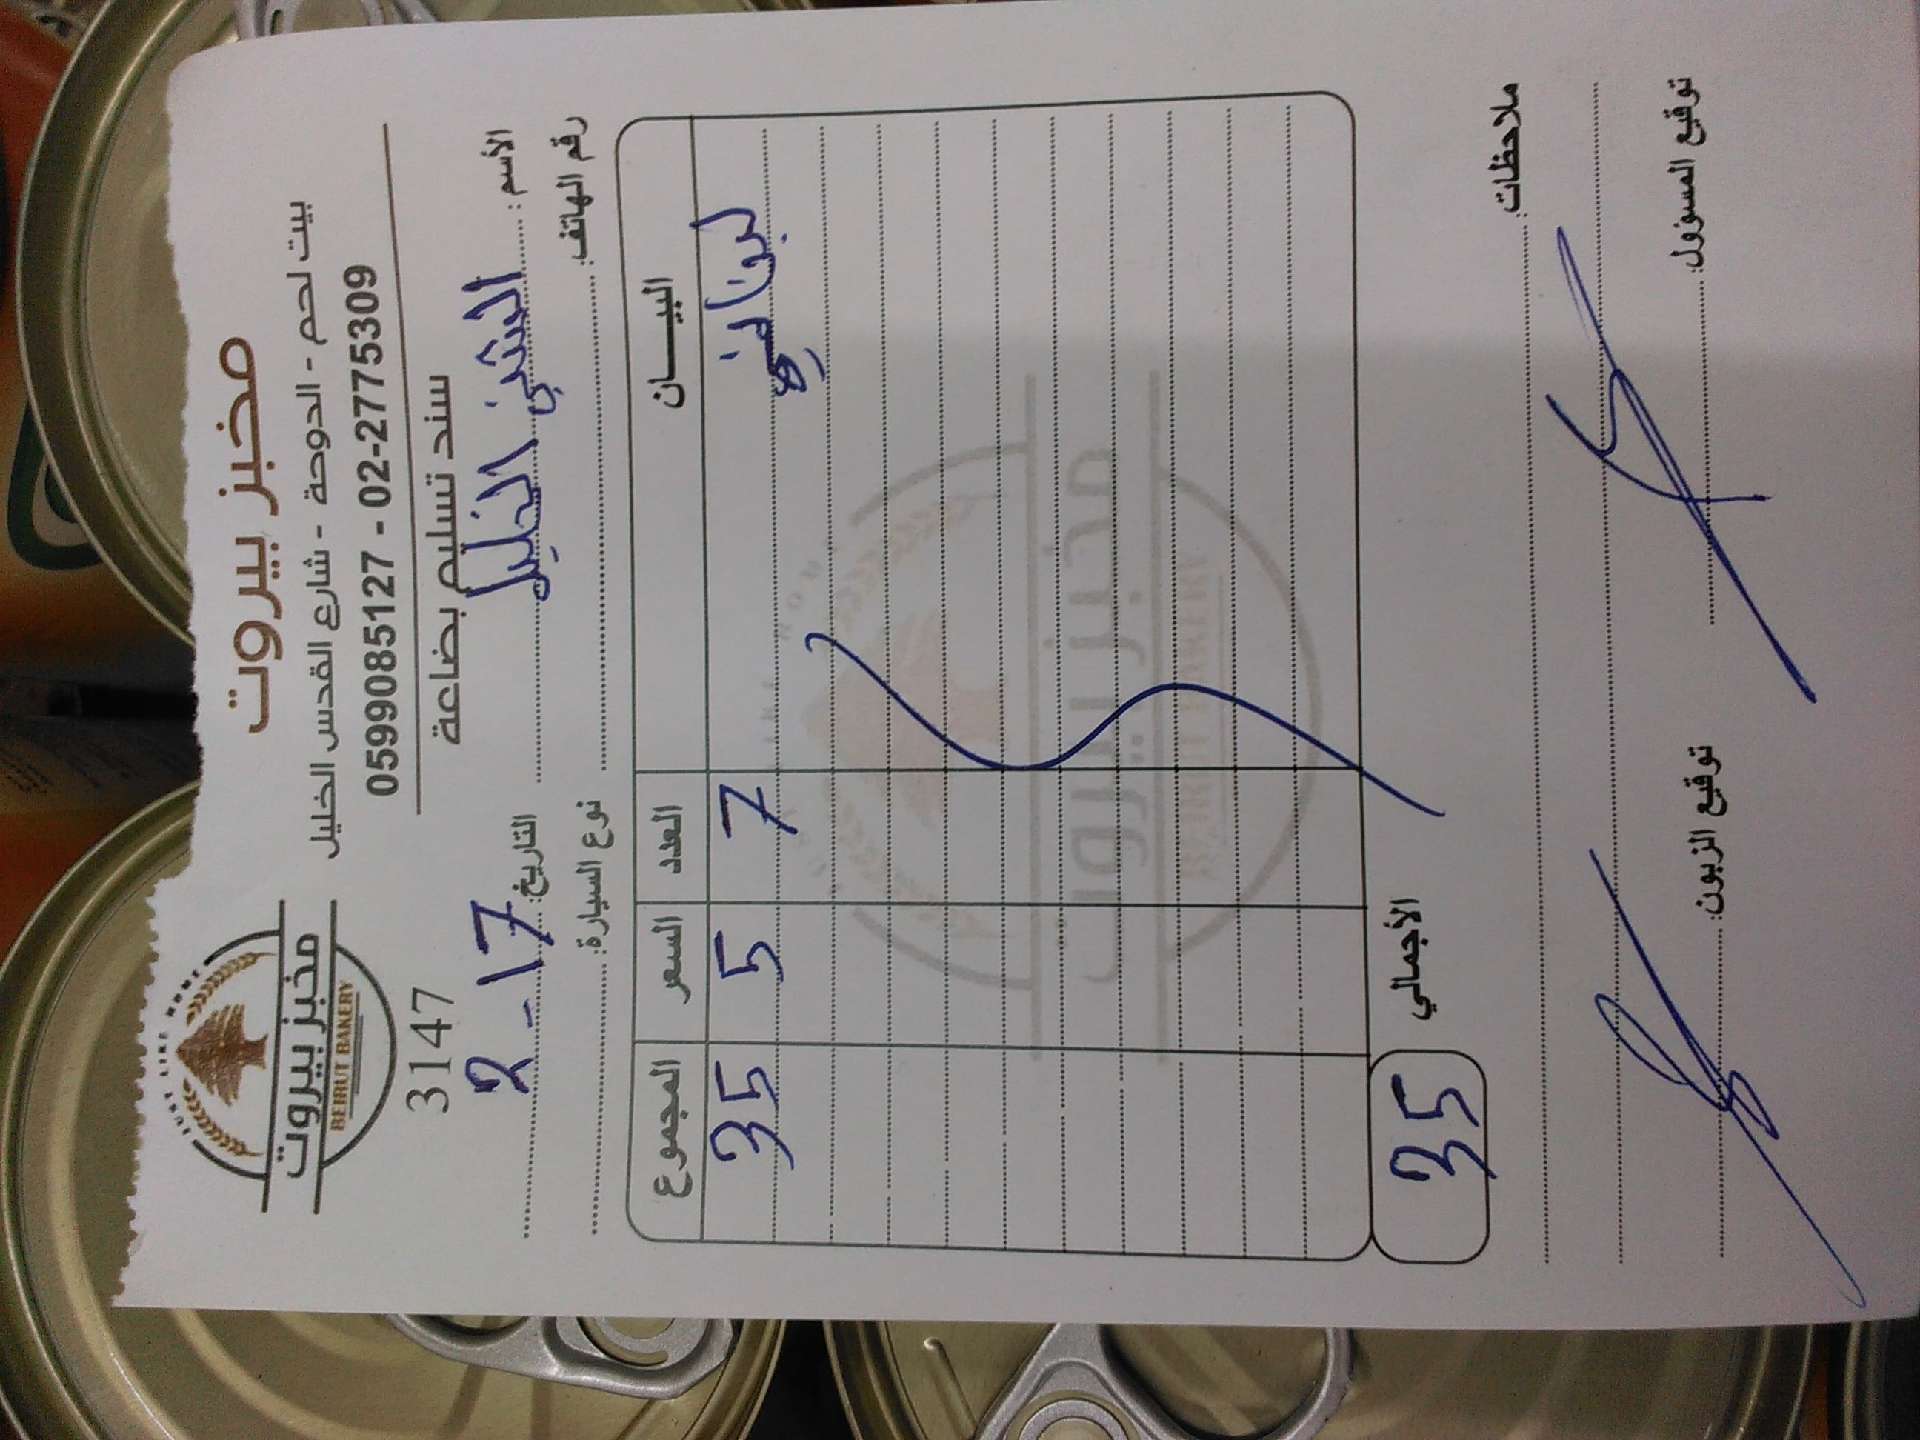 مخبز بيروت
بيت لحم - الدوحة - شارع القدس الخليل
0599085127 - 02-2775309
JUST LIKE HOME
مخبز بيروت
BEIRUT BAKERY
سند تسليم بضاعة
3147
الأسم: الخليل التاريخ: 17-2
رقم الهاتف: نوع السيارة:
البيـــان العدد السعر المجموع
7 5 35
مخبز بيروت
BEIRUT BAKERY
الأجمالي 35
ملاحظات:
توقيع المسؤول: توقيع الزبون: